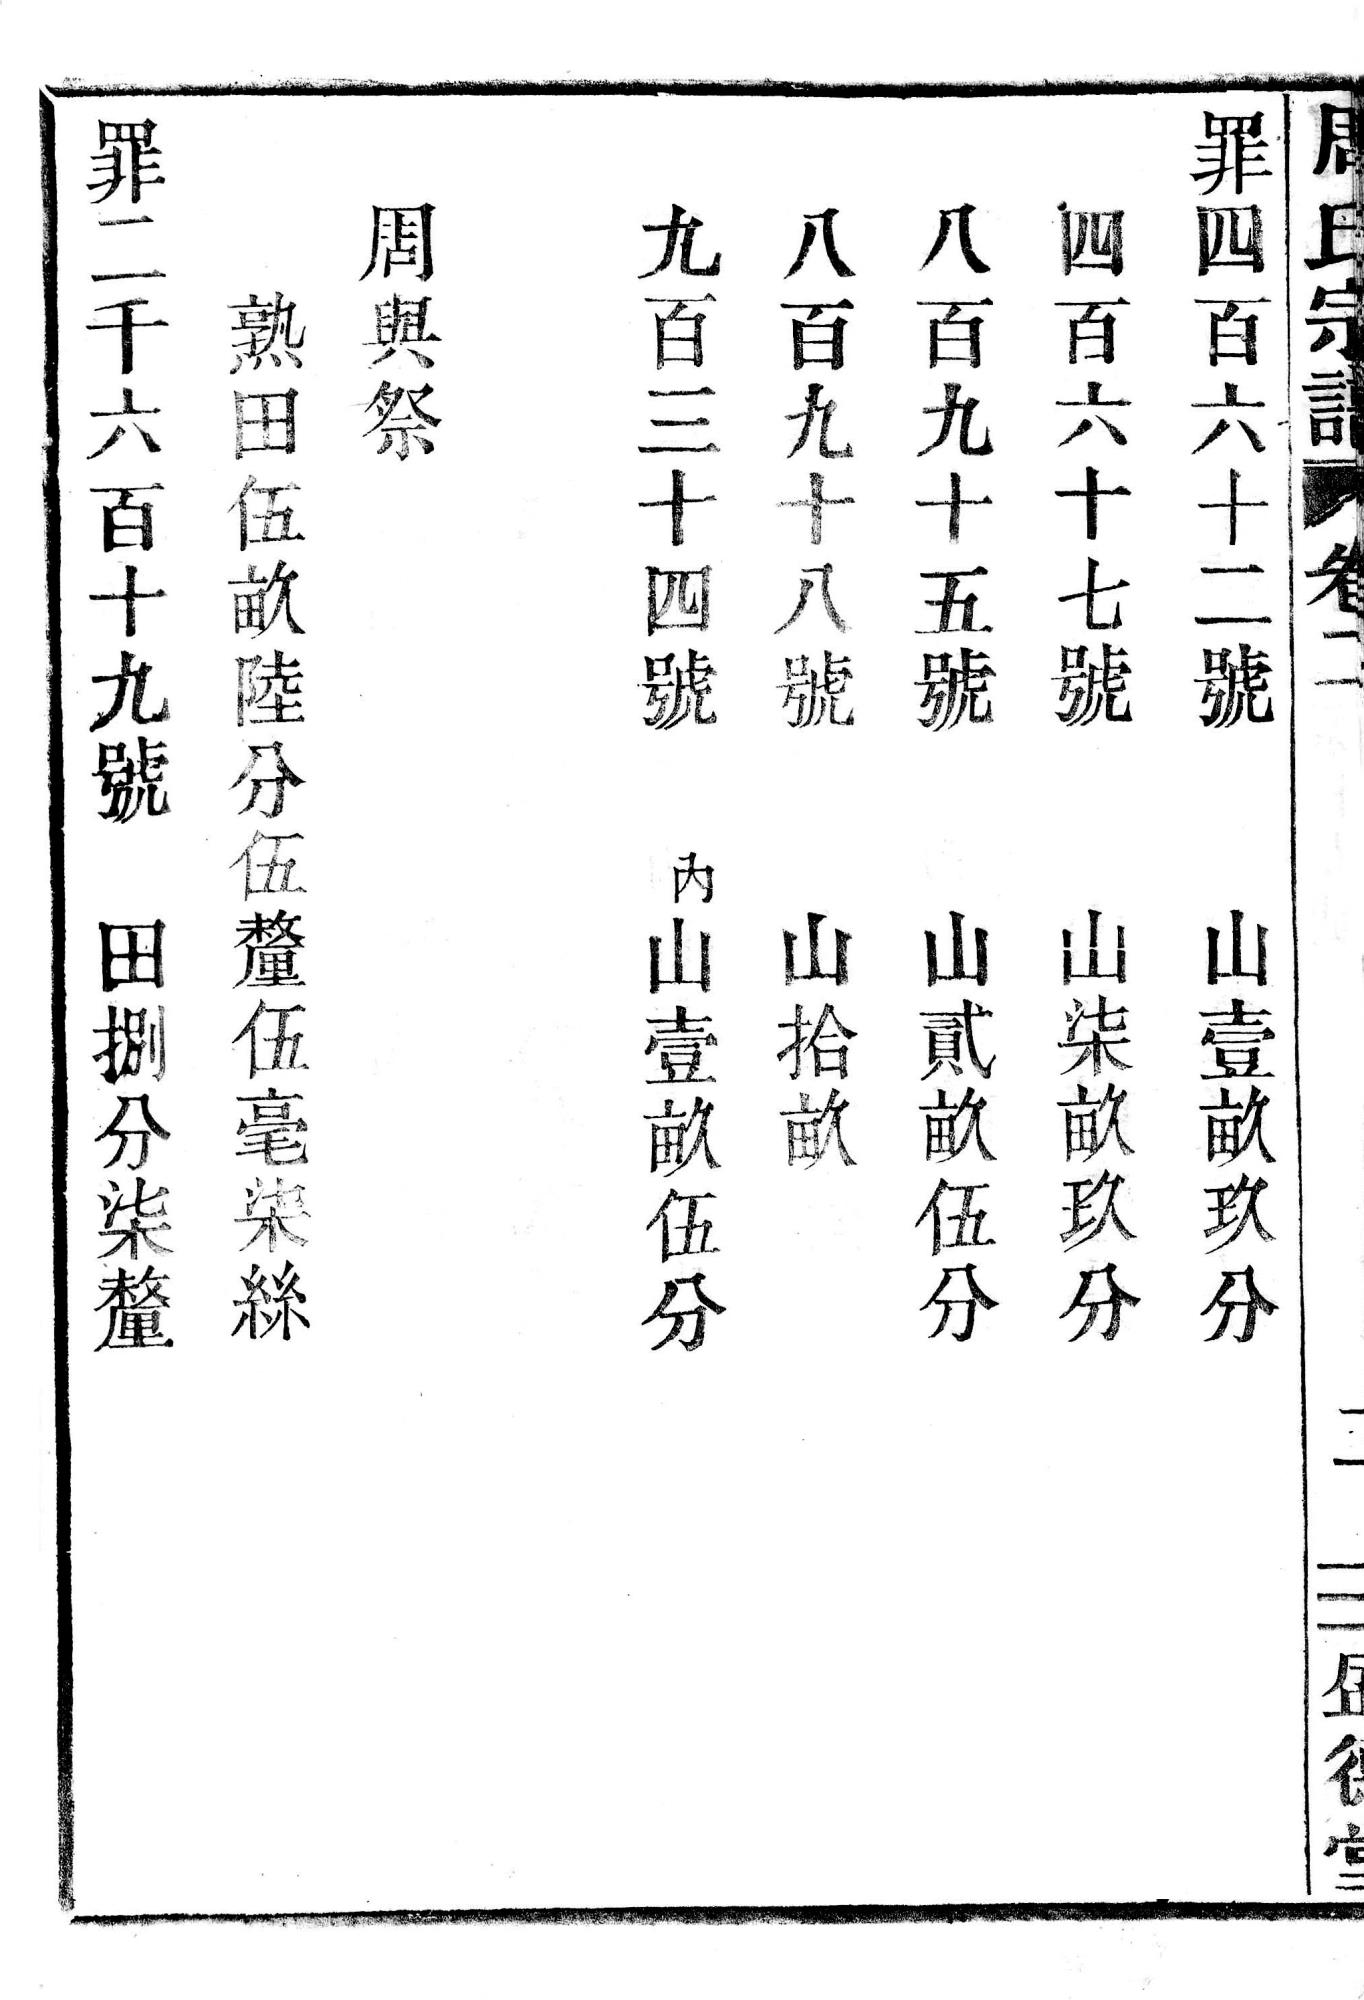 周氏宗譜 卷二 盛德堂
罪四百六十二號 山壹畝玖分
四百六十七號 山柒畝玖分
八百九十五號 山貳畝伍分
八百九十八號 山拾畝
九百三十四號 內山壹畝伍分
周與祭
熟田伍畝陸分伍釐伍毫柒絲
罪二千六百十九號 田捌分柒釐